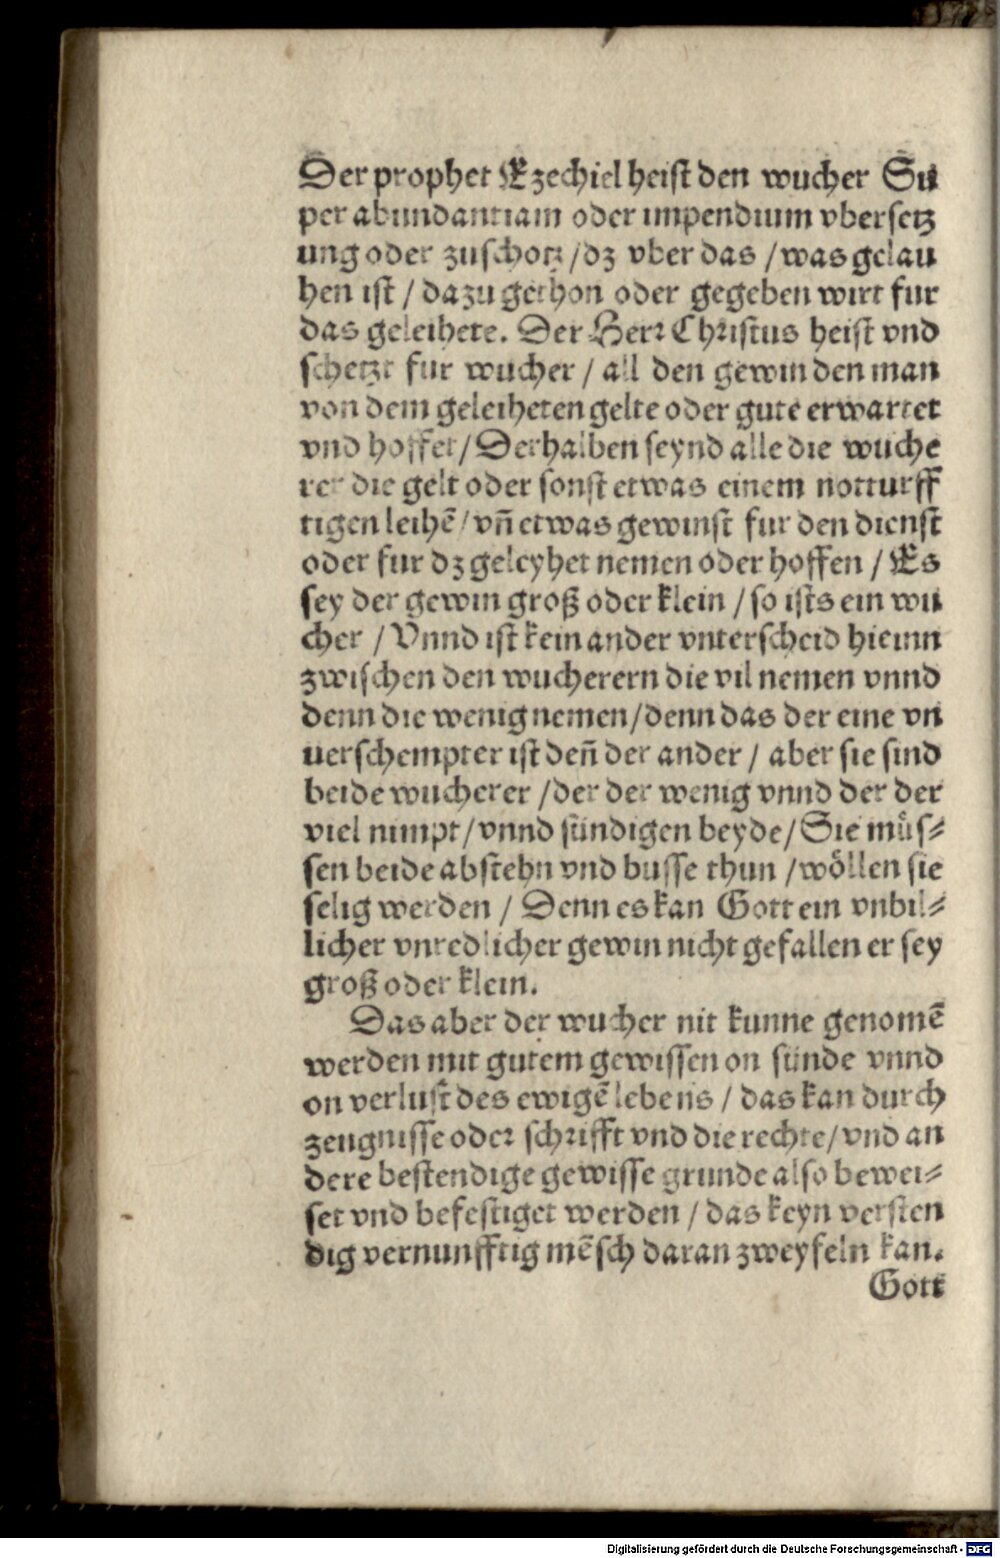 Der prophet Ezechiel heist den wucher Su
per abundantiam oder impendium vbersetz
ung oder zuschotz / dz vber das / was gelau
hen ist / dazu gethon oder gegeben wirt fur
das geleihete. Der Herr Christus heist vnd
schetzt fur wucher / all den gewin den man
von dem geleiheten gelte oder gute erwartet
vnd hoffet / Derhalben seynd alle die wuche
rer die gelt oder sonst etwas einem notturff
tigen leihē / vñ etwas gewinst fur den dienst
oder fur dz geleyhet nemen oder hoffen / Es
sey der gewin groß oder klein / so ists ein wu
cher / Vnnd ist kein ander vnterscheid hieinn
zwischen den wucherern die vil nemen vnnd
denn die wenig nemen / denn das der eine vn
uerschempter ist deñ der ander / aber sie sind
beide wucherer / der der wenig vnnd der der
viel nimpt / vnnd sündigen beyde / Sie müs⸗
sen beide abstehn vnd busse thun / wöllen sie
selig werden / Denn es kan Gott ein vnbil⸗
licher vnredlicher gewin nicht gefallen er sey
groß oder klein.
Das aber der wucher nit kunne genomē
werden mit gutem gewissen on sünde vnnd
on verlust des ewigē lebens / das kan durch
zeugnisse oder schrifft vnd die rechte / vnd an
dere bestendige gewisse grunde also bewei⸗
set vnd befestiget werden / das keyn versten
dig vernunfftig mēsch daran zweyfeln kan.
Gott
Digitalisierung gefördert durch die Deutsche Forschungsgemeinschaft - DFG